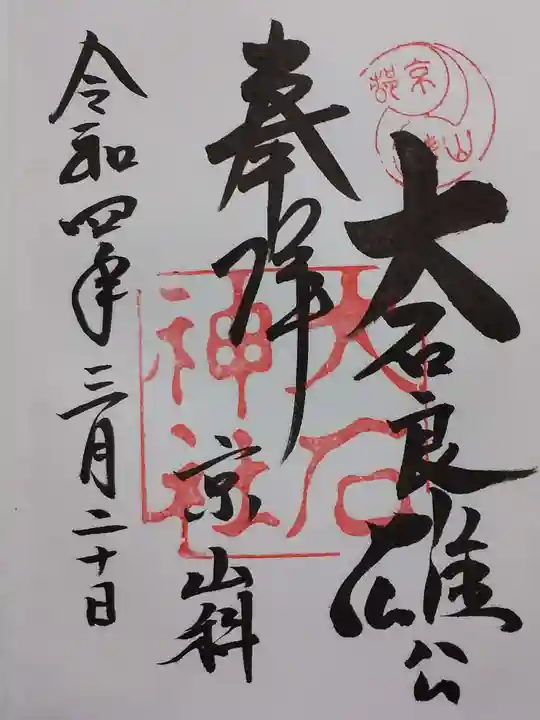 大石良雄公
奉拝
京山科
令和四年三月二十日
大石
神社